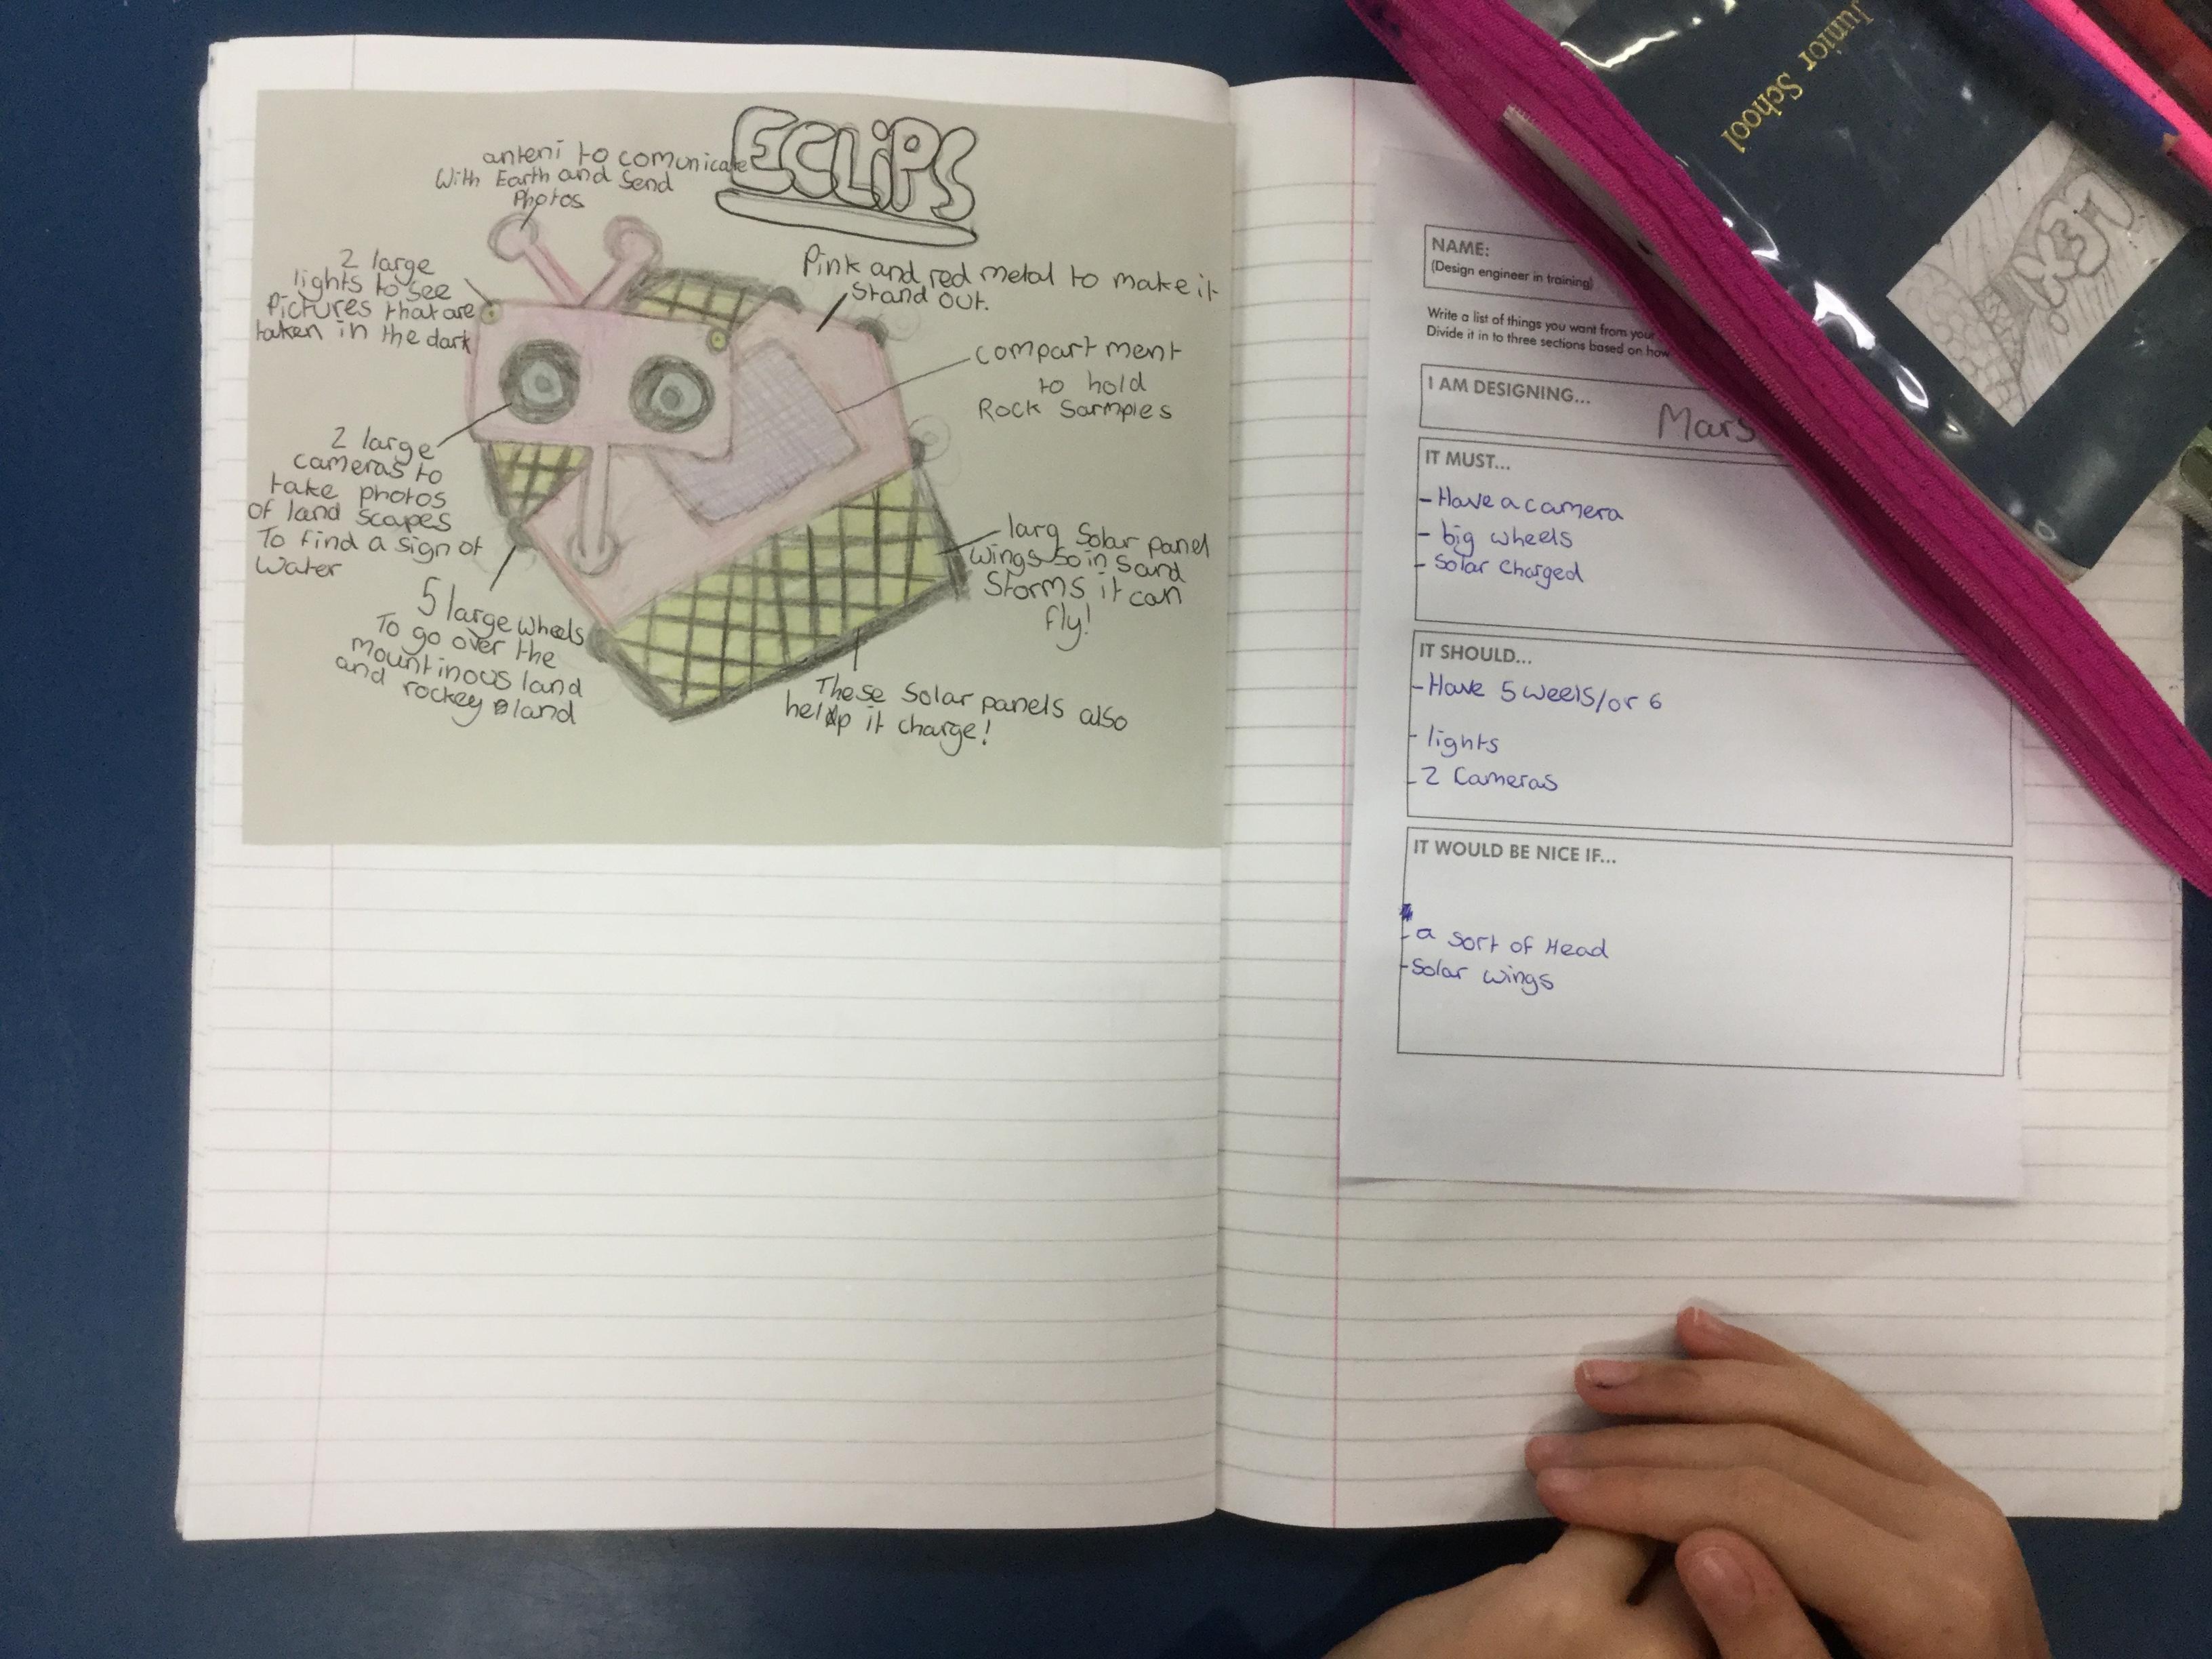 ECLiPS
anteni to comunicate
With Earth and Send
Photos
2 large
lights to see
Pictures that are
taken in the dark
Pink and red metal to make it
Stand out.
compartment
to hold
Rock Sarmples
2 large
cameras to
take photos
of land scapes
To find a sign of
Water
larg Solar panel
wings so in Sand
Storms it can
fly!
5 large wheels
To go over the
mountinous land
and rockey land
These Solar panels also
help it charge!
NAME:
(Design engineer in training)
Write a list of things you want from your
Divide it in to three sections based on how
I AM DESIGNING...
Mars
IT MUST...
- Have a camera
- big wheels
- Solar Charged
IT SHOULD...
- Have 5 weels/or 6
- lights
- 2 Cameras
IT WOULD BE NICE IF...
- a sort of Head
- Solar wings
Junior School